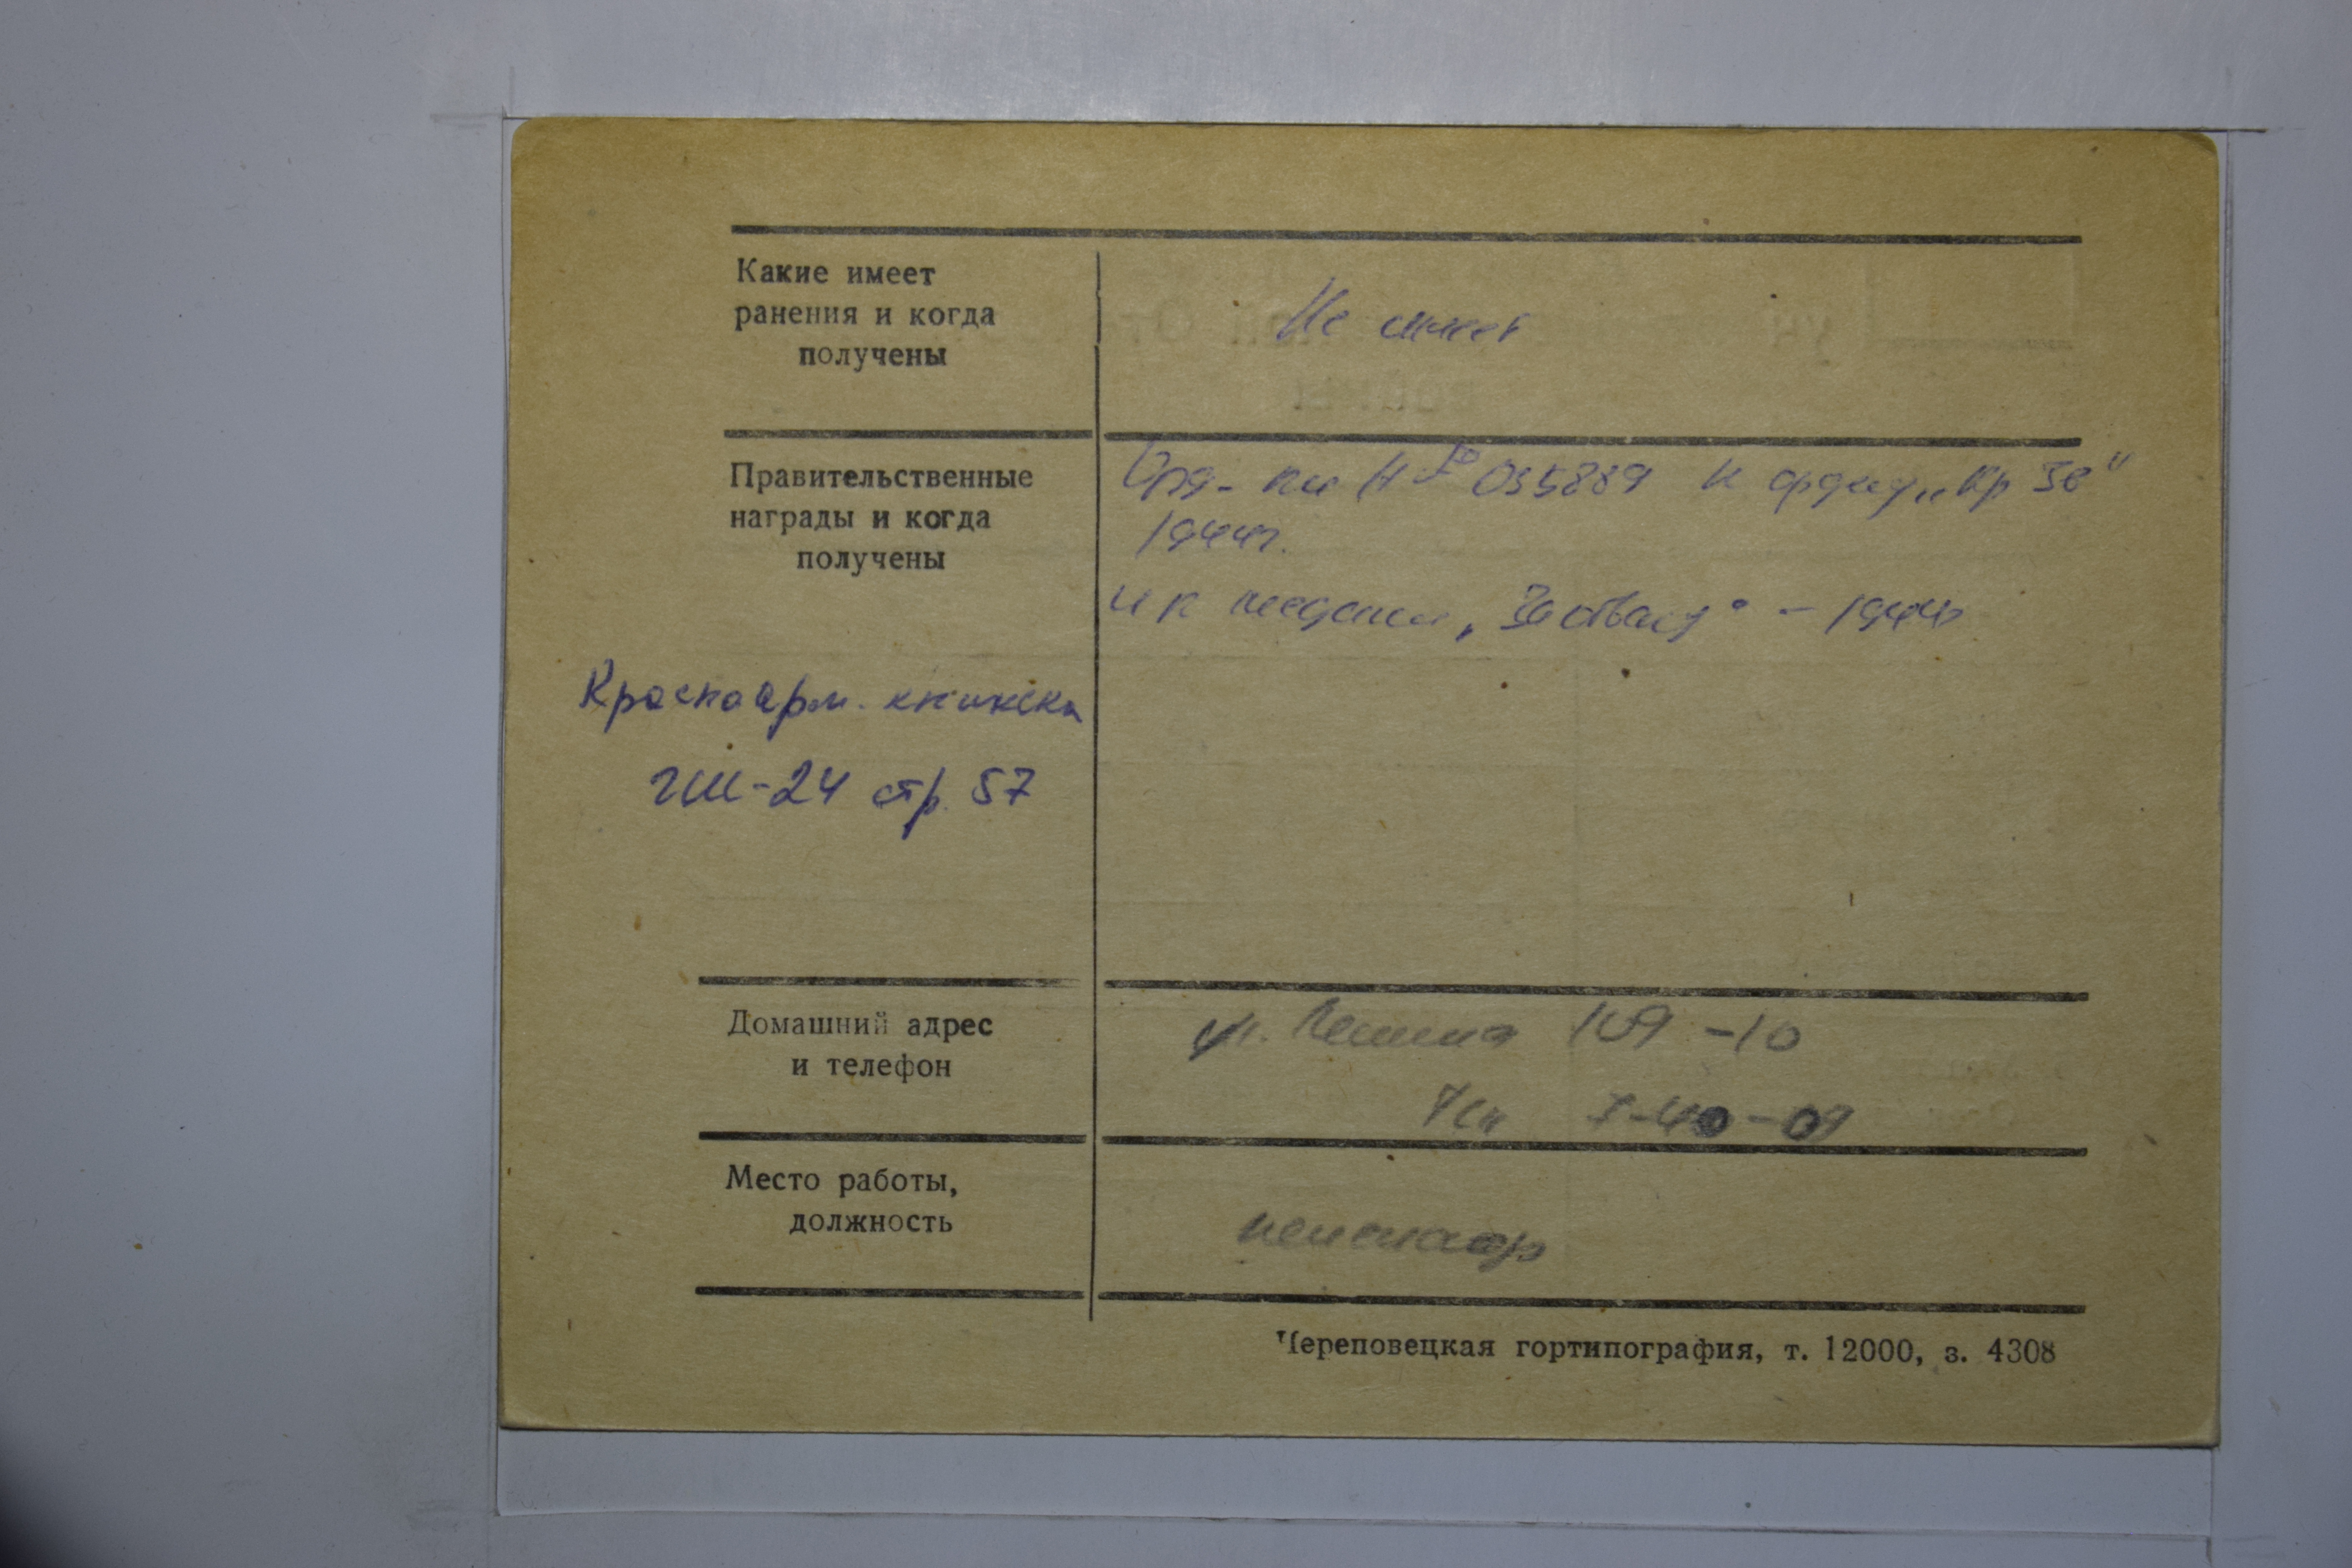 Какие имеет
ранения и когда
получены
Не имеет
Правительственные
награды и когда
получены
Орд. кн Н № 035889 к ордену „Кр Зв"
1944г.
и к медали „За отвагу" - 1944
Красноарм. книжка
ГИИ-24 стр. 57
Домашний адрес
и телефон
ул. Ленина 109 -10
7-40-09
Место работы,
должность
пенсионер
Череповецкая гортипография, т. 12000, з. 4308